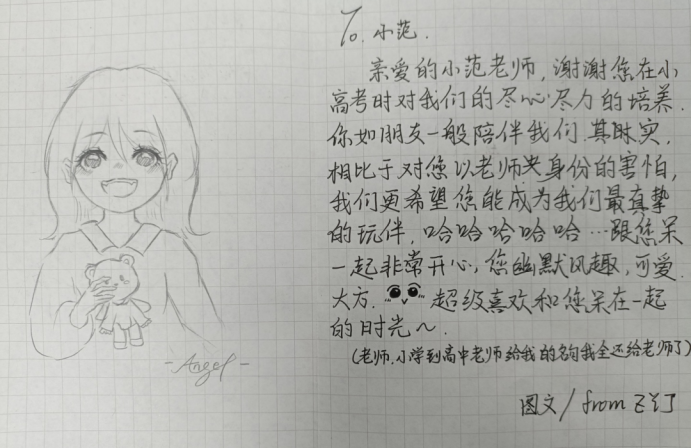 To. 小范.
亲爱的小范老师,谢谢您在小
高考时对我们的尽心尽力的培养.
你如朋友一般陪伴我们.其时实,
相比于对您以老师身份的害怕,
我们更希望您能成为我们最真挚
的玩伴,哈哈哈哈哈…跟您呆
一起非常开心,您幽默风趣,可爱
大方. 超级喜欢和您呆在一起
的时光~.
(老师,小学到高中老师给我的名句我全还给老师了)
图文/from
-Angel-